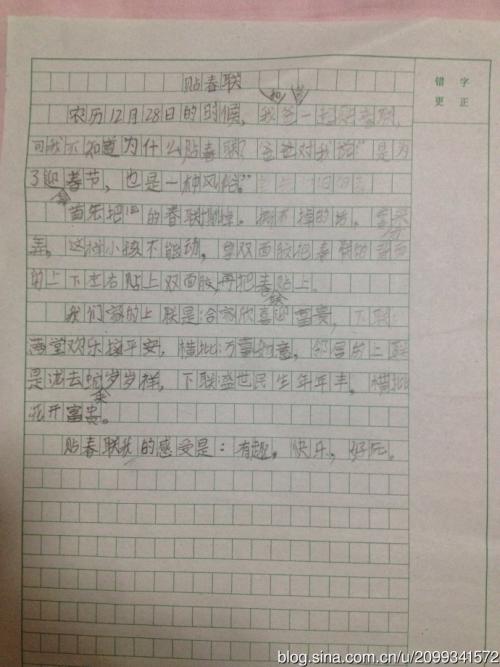 贴春联
错字
更正
农历12月28日的时候,我和爸爸一起贴春联,
可我不知道为什么贴春联?爸爸对我说"是为
了迎春节,也是一种风俗。"
首先把旧的春联撕掉。撕不掉的话,
弄,这种小孩不能动。拿双面胶把春联的背面
的上下左右贴上双面胶,再把春联贴上。
我们家的上联是:合家欣喜迎富贵,下联:
满堂欢乐接平安,横批:万事如意,邻居的上联
是 岁岁祥,下联盛世民生年年丰。横批
花开富贵。
贴春联我的感受是:有趣,快乐,好玩。
blog.sina.com.cn/u/2099341572